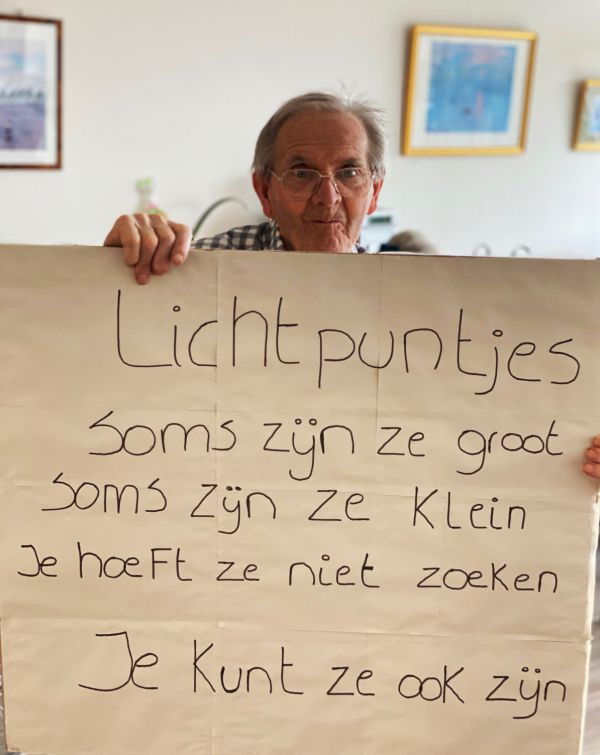 Lichtpuntjes
Soms zijn ze groot
Soms zijn ze klein
Je hoeft ze niet zoeken
Je kunt ze ook zijn